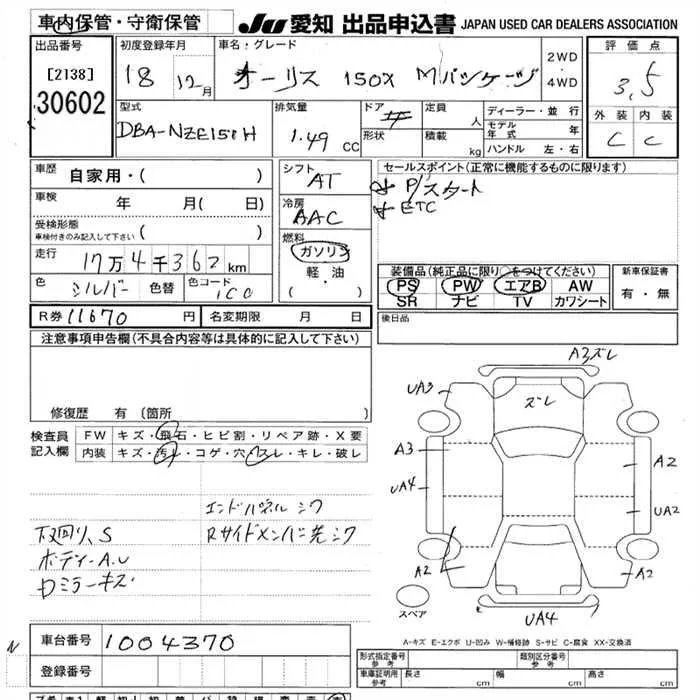 車内保管・守衛保管
JU 愛知 出品申込書 JAPAN USED CAR DEALERS ASSOCIATION
出品番号 [2138] 30602
初度登録年月 18 12月
車名・グレード オーリス 150X Mパッケージ
2WD・4WD
評価点 3.5
外装 C 内装 C
型式 DBA-NZE151H
排気量 1.49 CC
ドア 形状
定員 人
積載 kg
ディーラー・並行
モデル年式 年
ハンドル 左・右
車歴 自家用・( )
車検 年 月( 日)
受検形態 車検付きのみ記入して下さい ( )
走行 17万4千362km
色 シルバー 色替 色コード 1C0
シフト AT
冷房 AAC
燃料 ガソリン 軽・油 ( ・ )
セールスポイント(正常に機能するものに限ります)
P/スタート
ETC
装備品(純正品に限り○をつけてください)
PS PW エアB AW
SR ナビ TV カワシート
新車保証書 有・無
R券 11670 円 名変期限 月 日
後日品
注意事項申告欄(不具合内容等は具体的に記入して下さい)
修復歴 有(箇所 )
検査員記入欄
FW キズ・飛石・ヒビ割・リペア跡・X要
内装 キズ・汚れ・コゲ・穴・スレ・キレ・破レ
エンドパネル シワ
下回り、S Rサイドメンバー先シワ
ボディーA.U
Dミラーキズ
A3ズレ
UA3
ズレ
A3
A2
UA4
UA2
A2
A2
スペア
UA4
A-キズ E-エクボ U-凹み W-補修跡 S-サビ C-腐食 XX-交換済
N
車台番号 1004370
登録番号
形式指定番号 参考
類別区分番号 参考
車庫証明用 参考 長さ cm 幅 cm 高さ cm